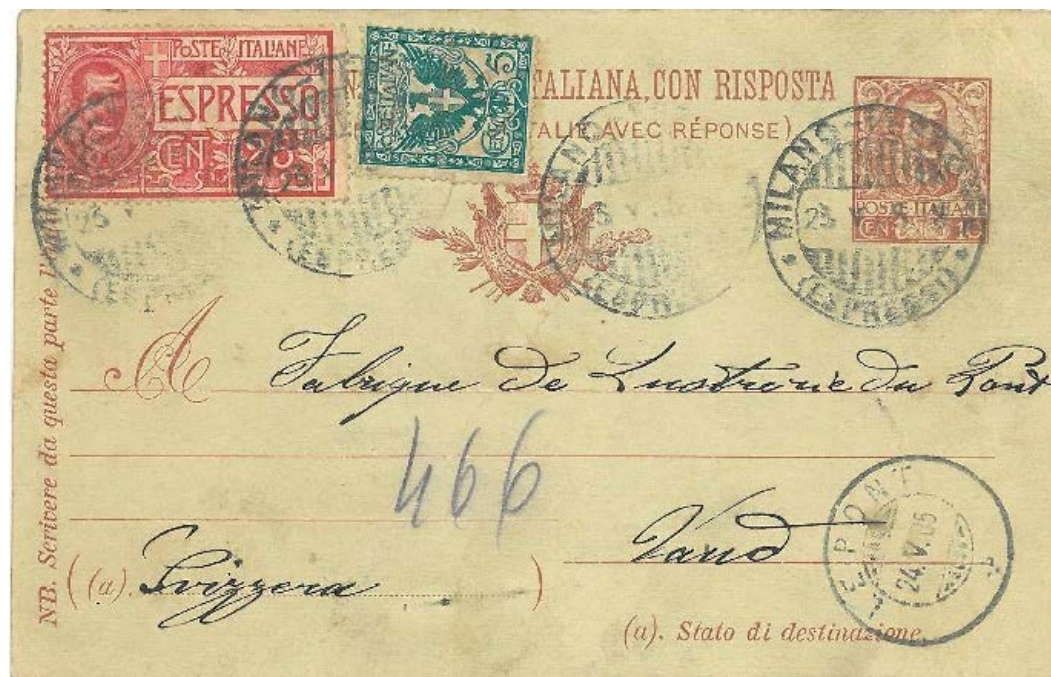 POSTE ITALIANE
ESPRESSO
CEN 25
POSTE ITALIANE
CENT. 5
ITALIANA, CON RISPOSTA
ITALIE AVEC RÉPONSE)
POSTE ITALIANE
MILANO
25 V
(ESPRESSI)
NB. Scrivere da questa parte
A Fabrique de Lustrerie du Pont
466
Vaud
(a). Svizzera
(a). Stato di destinazione.
LE PONT
24.V.05